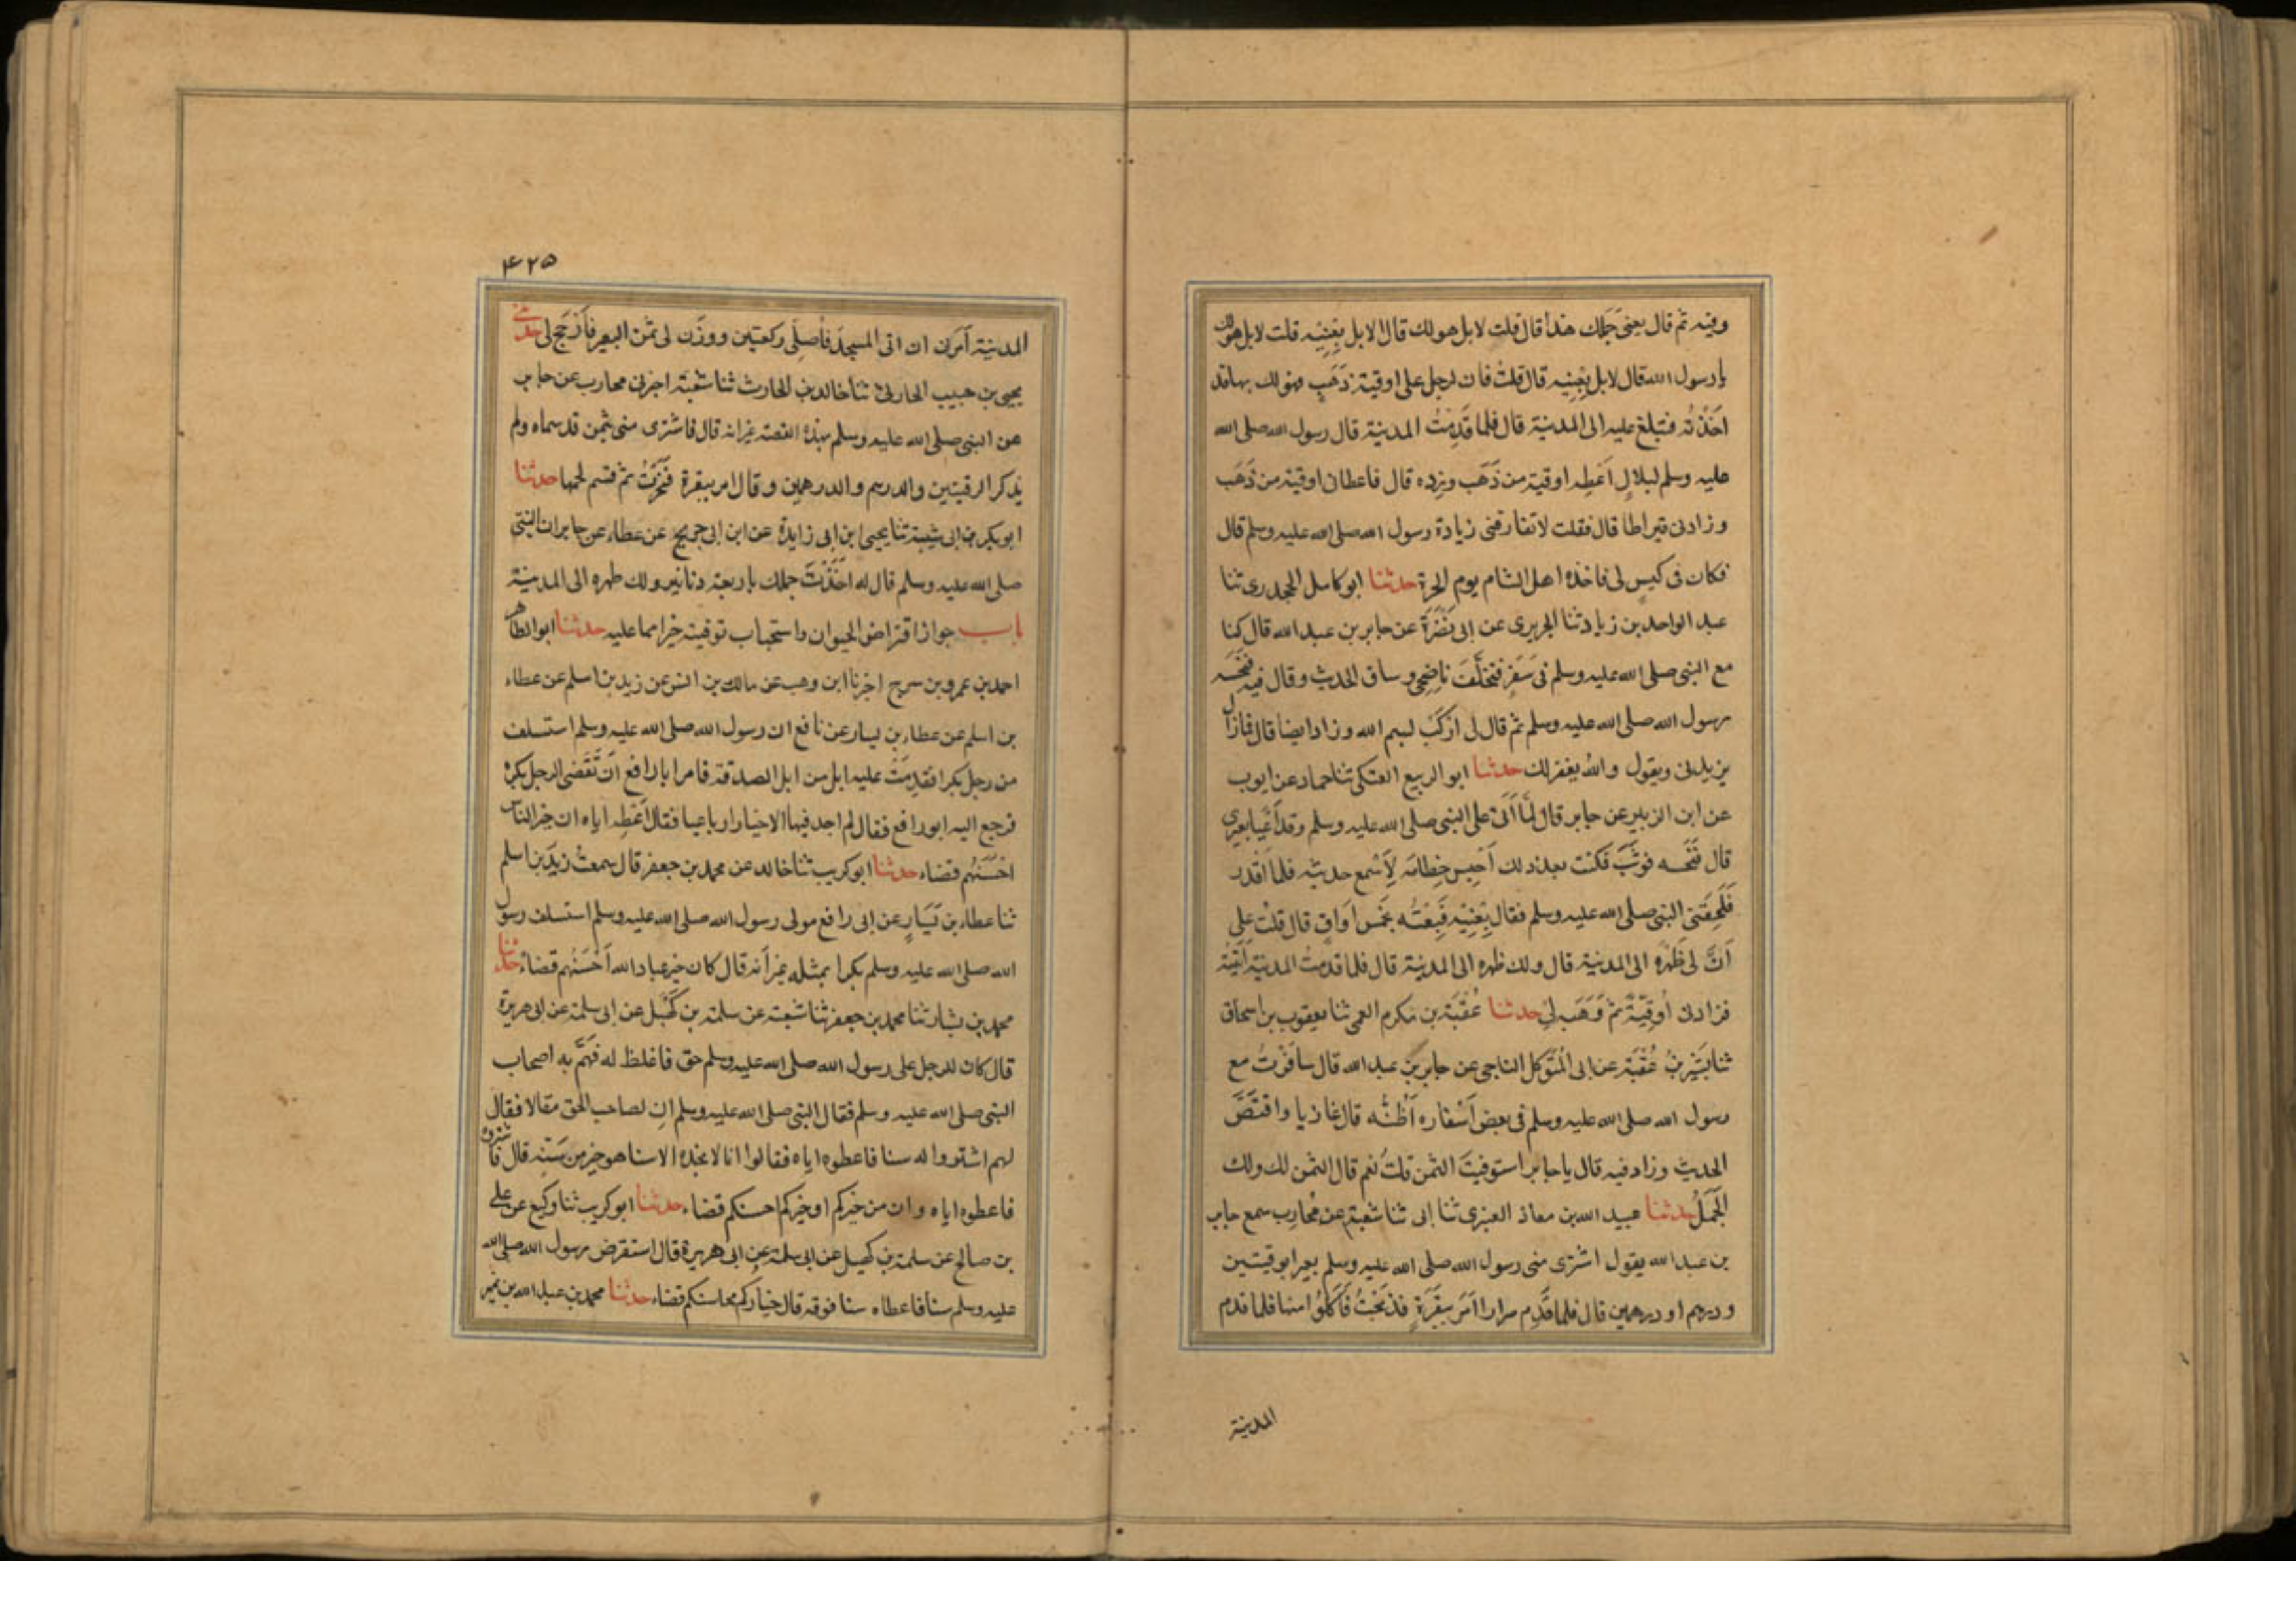 وفيه ثم قال بعنى جملك هذا قال قلت لا بل هو لك قال لا بل بِعْنِيه قلت لا بل هو لك
يا رسول الله قال لا بل بِعْنِيه قال قلتُ فان لرجل على اوقية ذَهَبٍ فهو لك بها قد
اخذتُه فتبلغ عليه الى المدينة قال فلما قَدِمْتُ المدينة قال رسول الله صلى الله
عليه وسلم لبلالٍ اَعْطِه اوقية من ذَهَب وزِده قال فاعطانى اوقية من ذَهَب
وزادنى قيراطا قال فقلت لا تفارقنى زيادة رسول الله صلى الله عليه وسلم قال
فكان فى كيسٍ لى فاخذه اهل الشام يوم الحرة حدثنا ابو كامل الجحدرى ثنا
عبد الواحد بن زياد ثنا الجريرى عن ابى نَضْرَة عن جابر بن عبد الله قال كنا
مع النبى صلى الله عليه وسلم فى سَفَرٍ فتخلَّفَ ناضِحِى وساق الحديث وقال فيه فنخسه
رسول الله صلى الله عليه وسلم ثم قال لى ارْكَبْ لبسم الله وزاد ايضا قال فما زال
يزيدنى ويقول والله يغفر لك حدثنا ابو الربيع العتكى ثنا حماد عن ايوب
عن ابن الزبير عن جابر قال لمَّا اَتَى علىَّ النبى صلى الله عليه وسلم وقد اَعْيَا بعيرى
قال فنَخَسه فوثَبَ فكنت بعد ذلك اَحْبِس خِطامَه لِاَسْمع حديثه فلما اقدر
فَلَحِقَنى النبى صلى الله عليه وسلم فقال بِعْنِيْه فَبِعْتُه بخمس اَوَاقٍ قال قلتُ على
اَنَّ لى ظَهْرَه الى المدينة قال ولك ظهره الى المدينة قال فلما قدمت المدينة اَتَيْتُه
فزادنى اُوقيَّةً ثم وَهَبَه لى حدثنا عُقْبَة بن مكرم العمى ثنا يعقوب بن اسحاق
ثنا بَشير بنُ عُقْبَة عن ابى المُتَوَكل الناجى عن جابر بن عبد الله قال سافَرْتُ مع
رسول الله صلى الله عليه وسلم فى بعض اَسْفاره اَظُنُّه قال غازيا واقتَصَّ
الحديث وزاد فيه قال يا جابر استوفيتَ الثمن قلتُ نعم قال الثمن لك ولك
الجَمَلُ حدثنا عبيد الله بن معاذ العنبرى ثنا ابى ثنا شعبة عن مُحارِب سمع جابر
بن عبد الله يقول اشترى منى رسول الله صلى الله عليه وسلم بعيرا بوقيتين
ودرهم او درهمين قال فلما قَدِم صرارا اَمَر ببَقَرَةٍ فذبحَتْ فاَكَلُوْا منها فلما قدم
المدينة
٤٢٥
المدينة اَمَرنى ان اتى المسجدَ فاُصلِّى ركعتين ووزَن لى ثمن البعير فاَرْجَحَ لى حدثنى
يحيى بن حبيب الحارثى ثنا خالد بن الحارث ثنا شعبة اخبرنى محارب عن جابر
عن النبى صلى الله عليه وسلم بهذه القصة غير انه قال فاشترى منى بثمن قد سماه ولم
يذكر الوقيتين والدرهم والدرهمين وقال امر ببقرة فنُحِرَتْ ثم قسم لحمها حدثنا
ابو بكر بن ابى شيبة ثنا يحيى ابن ابى زايدة عن ابن ابى جريج عن عطاء عن جابر ان النبى
صلى الله عليه وسلم قال له اخَذْتُ جملك باربعة دنانير ولك ظهره الى المدينة
باب جواز اقتراض الحيوان واستحباب توفيته خيرا مما عليه حدثنا ابو الطاهر
احمد بن عمرو بن سرح اخبرنا ابن وهب عن مالك بن انس عن زيد بن اسلم عن عطاء
بن اسلم عن عطاء بن يسار عن نافع ان رسول الله صلى الله عليه وسلم استسلف
من رجل بكرا فقدِمَتْ عليه ابل من ابل الصدقة فامر ابا رافع اَنْ تَقضى الرجل بكره
فرجع اليه ابو رافع فقال لم اجد فيها الا خيارا رباعيا فقال اَعْطِه اياه ان خير الناس
احْسَنُهم قضاء حدثنا ابو كريب ثنا خالد عن محمد بن جعفر قال سمعتُ زيدَ بن اسلم
ثنا عطاء بن يَسَارٍ عن ابى رافع مولى رسول الله صلى الله عليه وسلم استسلف رسول
الله صلى الله عليه وسلم بكرا بمثله غير اَنه قال كان خير عباد الله اَحْسَنُهم قضاء حدثنا
محمد بن بشار ثنا محمد بن جعفر ثنا شعبة عن سلمة بن كُهَيْل عن ابى سلمة عن ابى هريرة
قال كان لرجل على رسول الله صلى الله عليه وسلم حق فاغلظ له فهَمَّ به اصحاب
النبى صلى الله عليه وسلم فقال النبى صلى الله عليه وسلم ان لصاحب الحق مقالا فقال
لهم اشتروا له سنا فاعطوه اياه فقالوا انا لا نجده الا سنا هو خير من سَنِّه قال فاشتروه
فاعطوه اياه وان من خيركم او خيركم احسنكم قضاء حدثنا ابو كريب ثنا وكيع عن على
بن صالح عن سلمة بن كهيل عن ابى سلمة عن ابى هريرة قال استقرض رسول الله صلى الله
عليه وسلم سنا فاعطاه سنا فوقه قال خياركم محاسنكم قضاء حدثنا محمد بن عبد الله بن نمير